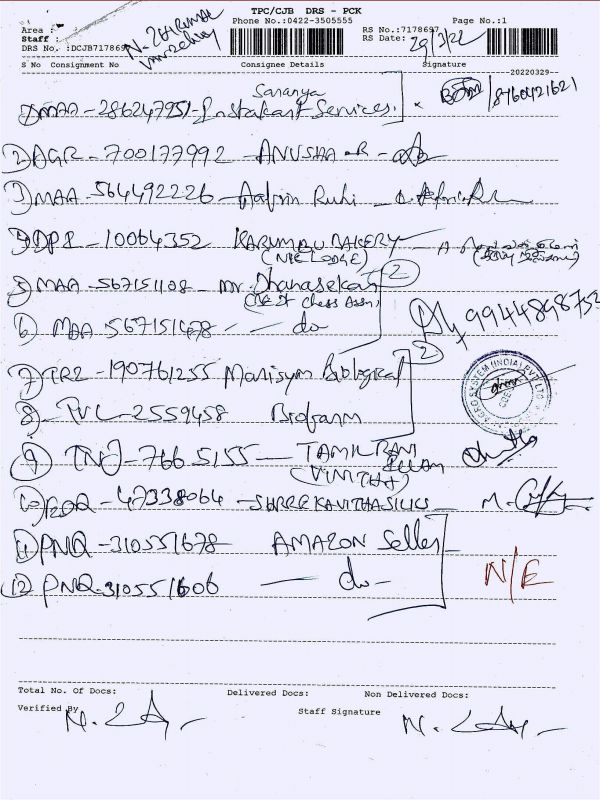 TPC/CJB DRS - PCK
Phone No.:0422-3505555 Page No.:1
Area :
Staff :
DRS No. :DCJB7178697
RS No.:7178697
RS Date: 29/3/22
S No Consignment No Consignee Details Signature
20220329
Saranya
1) MAA - 286247951 - Instakart Services. 8760421621
2) AGR - 700177992 - ANUSHA - R -
3) MAA - 564492226 - Aafrin Ruhi -
4) DPI - 10064352 KARUMBU BAKERY - A
(NIE LODGE)
5) MAA - 567151108 - Mr. Dhanasekar 2
(West Chess Assn)
6) MAA - 567151698 - - do 9944898752
7) - 190761255 Marisym Biological 2
8) TVL - 2559458 Biofarm
AGRO SYSTEM (INDIA) PVT LTD
9) TNJ - 766 5155 - TAMILRANI ILLAM
(VINITHA)
10) - 47338064 - SHREE KAVITHA SILKS M.
11) PNQ - 310551678 AMAZON Seller
12) PNQ - 310551606 - do - N/E
Total No. Of Docs: Delivered Docs: Non Delivered Docs:
Verified By Staff Signature